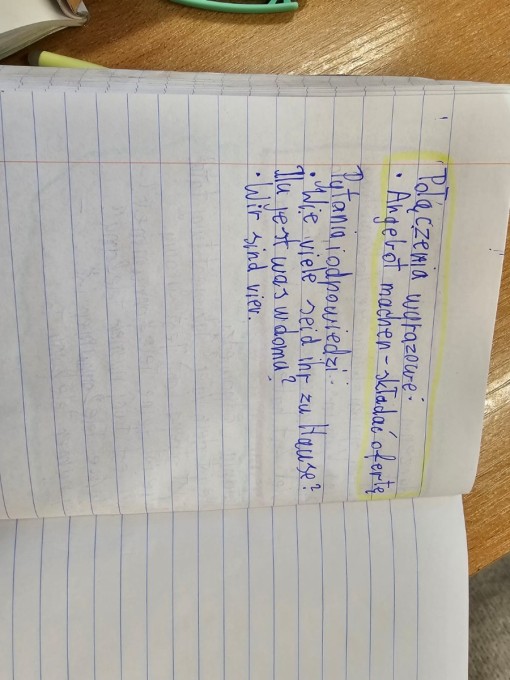 Połączenia wyrazowe:
• Angebot machen - składać ofertę
Pytania i odpowiedzi:
• Wie viele seid ihr zu Hause?
Ilu jest was w domu?
• Wir sind vier.